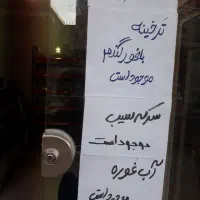 ترخینه
بلغور گندم
موجود است
سرکه سیب
موجود است
آب غوره
موجود است